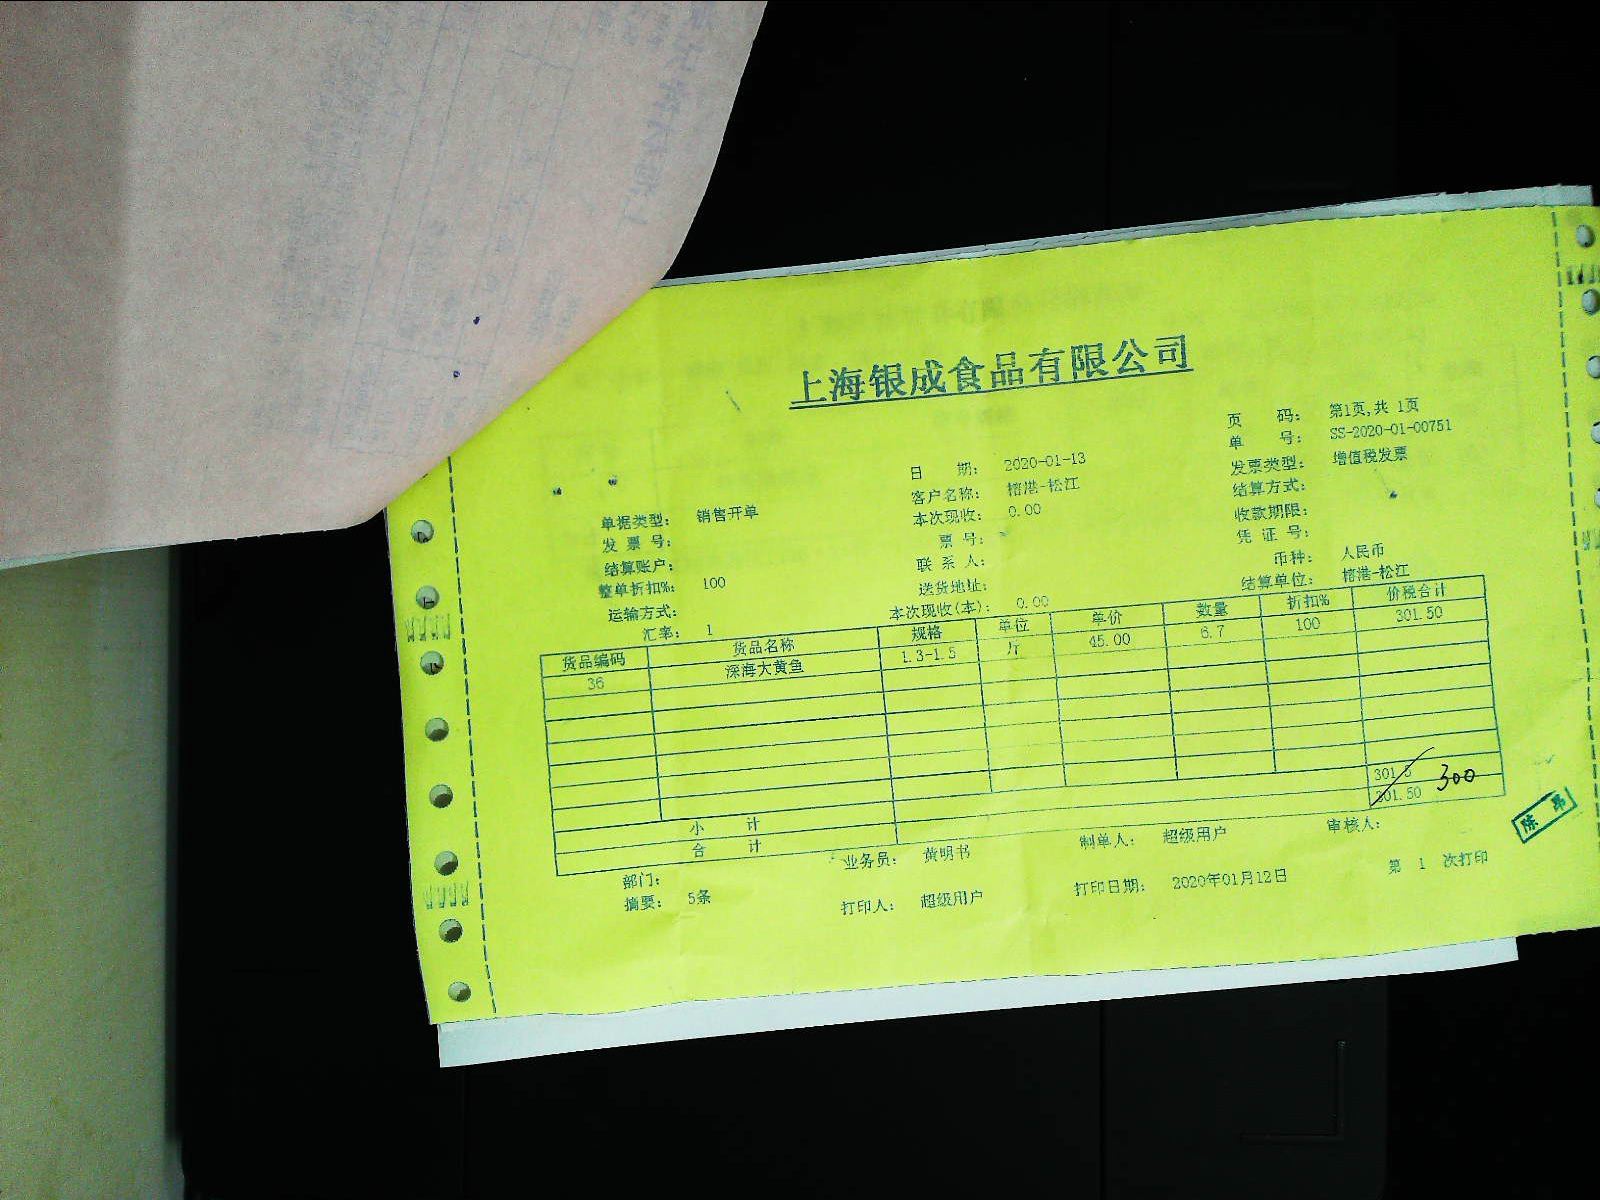 上海银成食品有限公司
页 码: 第1页,共 1页
单 号: SS-2020-01-00751
日 期: 2020-01-13 发票类型: 增值税发票
客户名称: 榕港-松江 结算方式:
单据类型: 销售开单 本次现收: 0.00 收款期限:
发 票 号: 票 号: 凭 证 号:
结算账户: 联 系 人: 币种: 人民币
整单折扣%: 100 送货地址: 结算单位: 榕港-松江
运输方式: 本次现收(本): 0.00
汇率: 1
货品编码 货品名称 规格 单位 单价 数量 折扣% 价税合计
36 深海大黄鱼 1.3-1.5 斤 45.00 6.7 100 301.50
小 计 301.5
合 计 301.50 300
部门: 业务员: 黄明书 制单人: 超级用户 审核人:
摘要: 5条 打印人: 超级用户 打印日期: 2020年01月12日 第 1 次打印
陈 昂